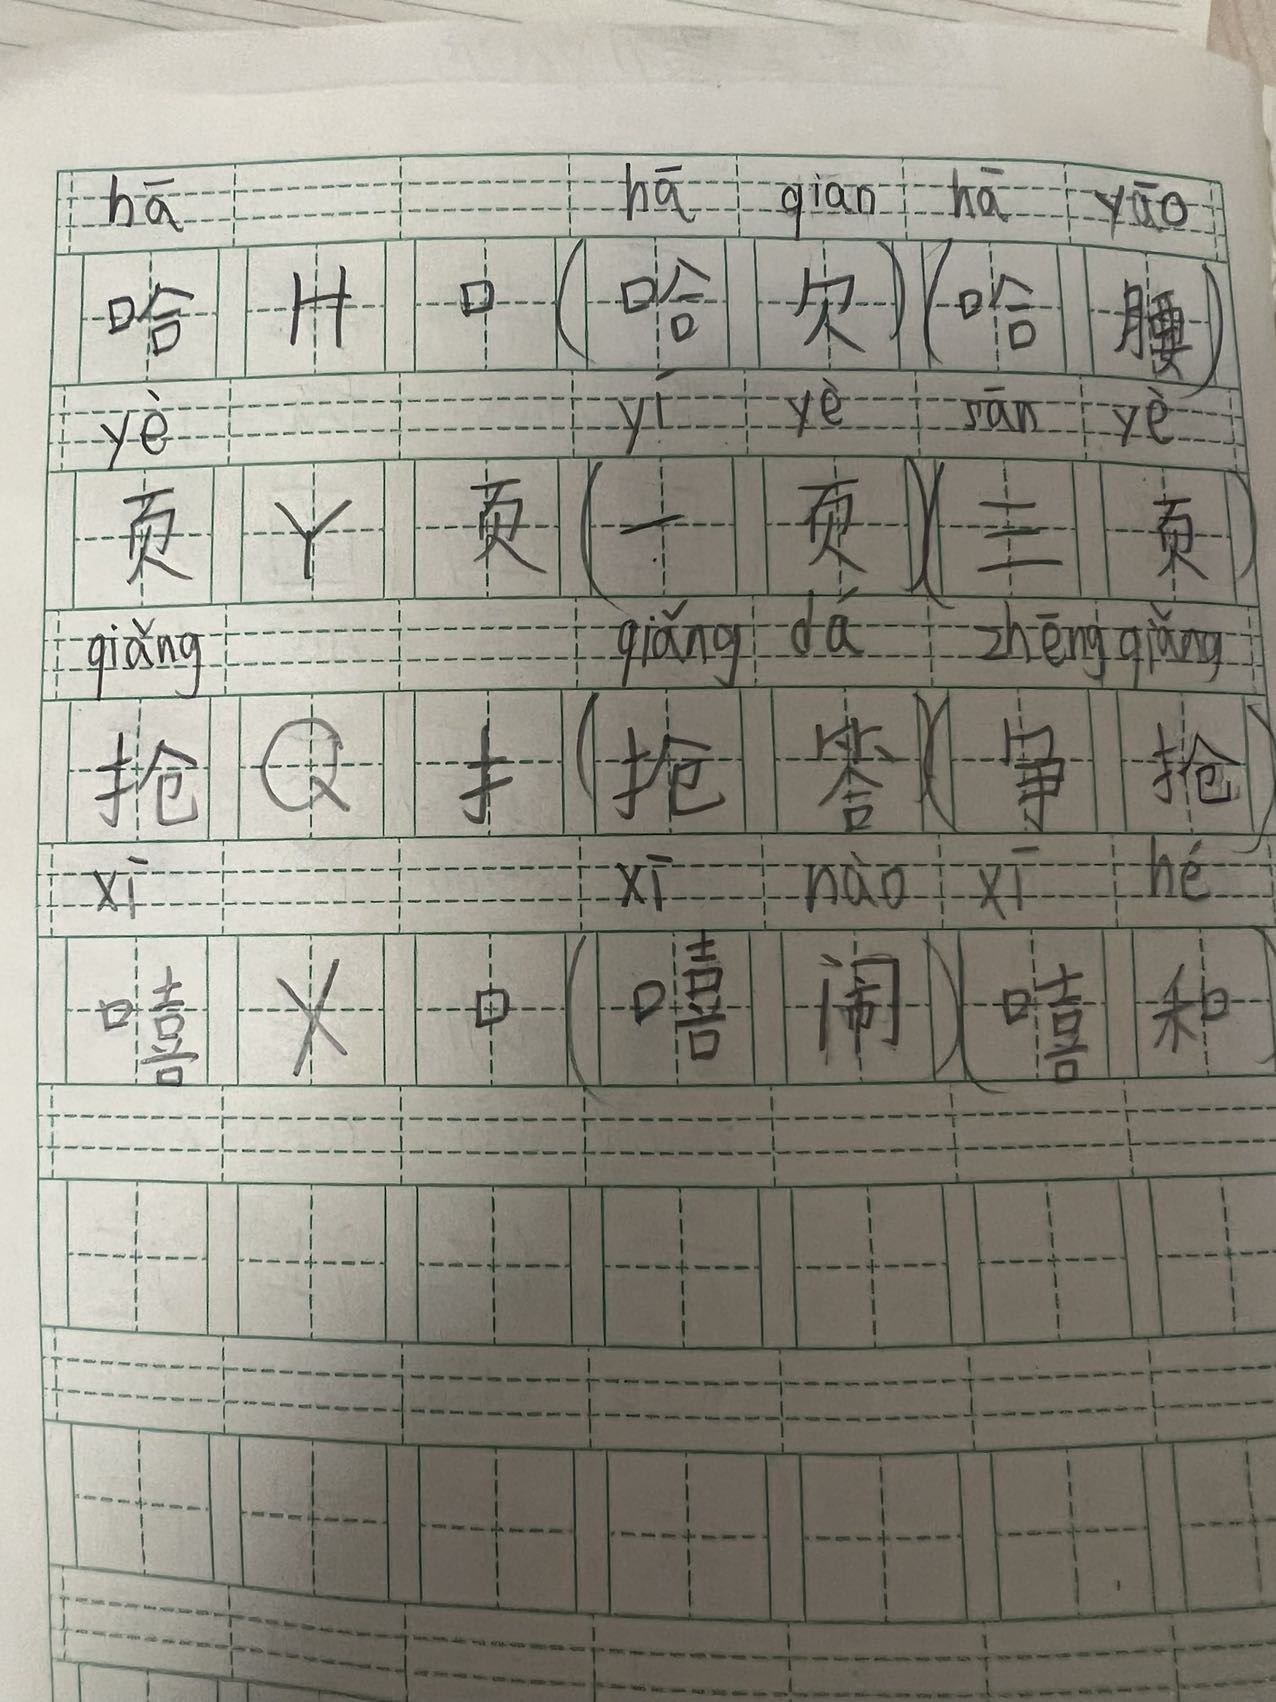 hā hā qian hā yāo
哈 H 口 (哈 欠) (哈 腰)
yè yí yè sān yè
页 Y 页 (一 页) (三 页)
qiǎng qiǎng dá zhēng qiǎng
抢 Q 扌 (抢 答) (争 抢)
xī xī nào xī hé
嘻 X 口 (嘻 闹) (嘻 和)